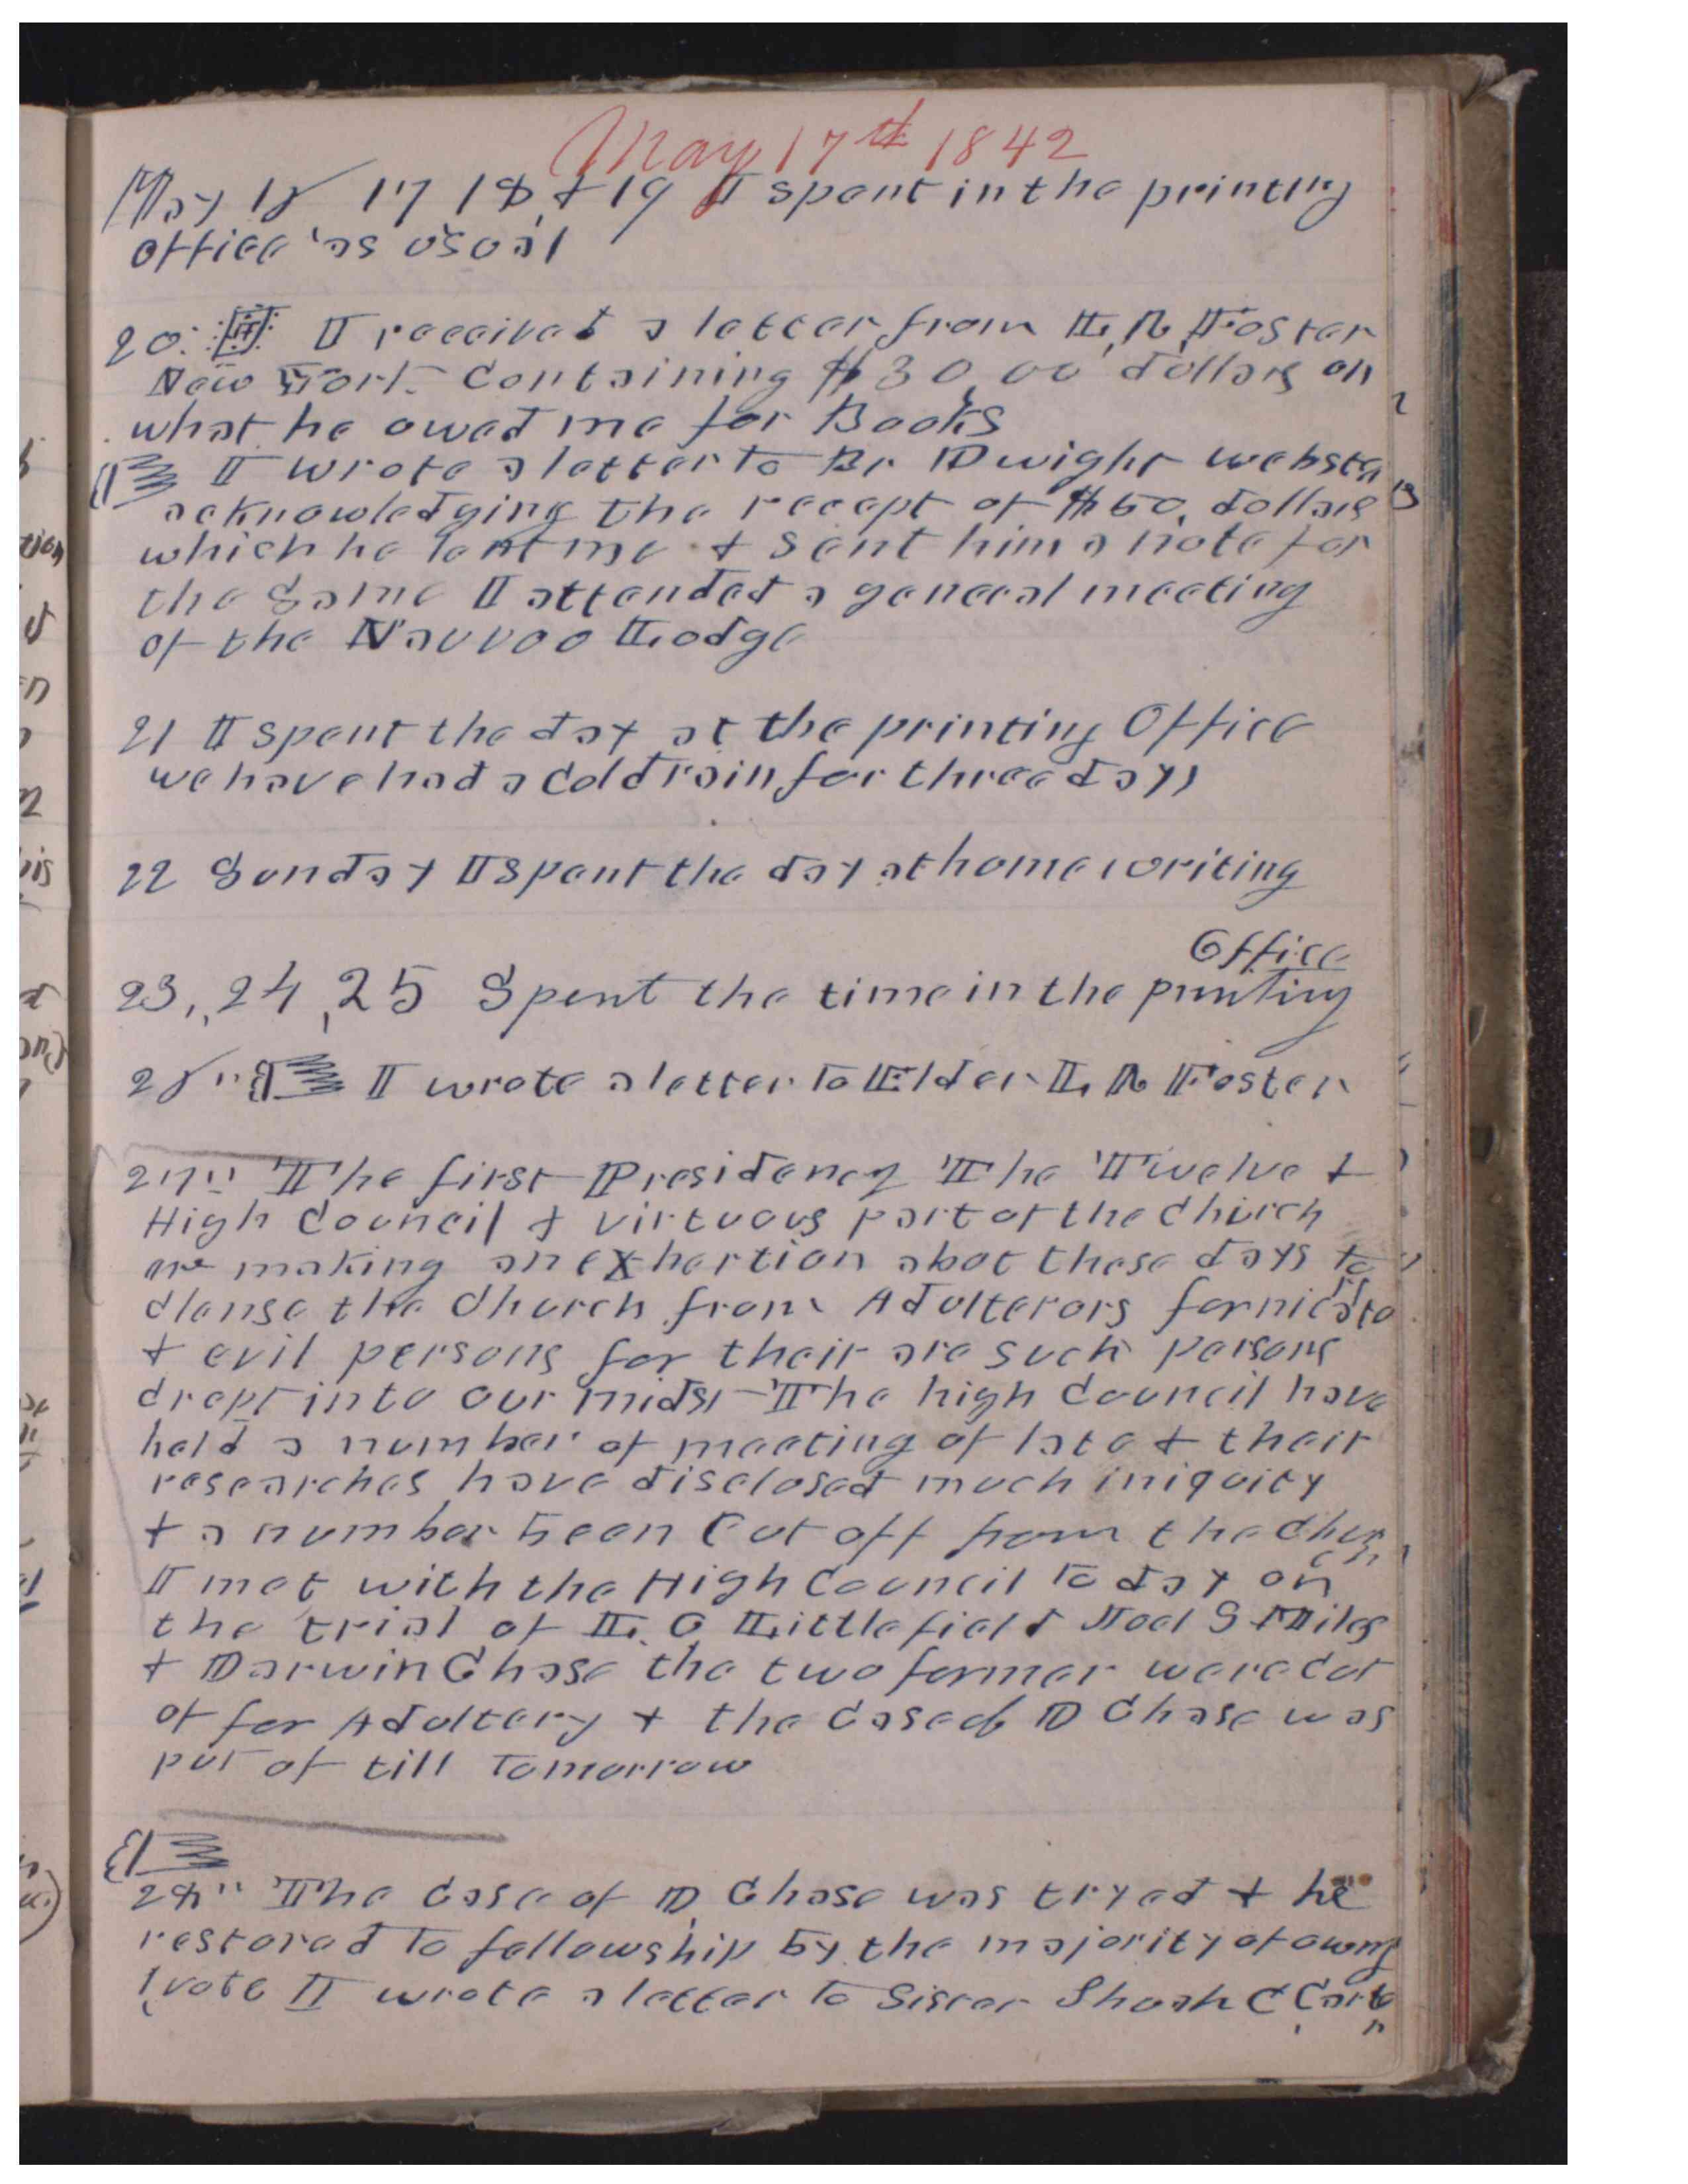 May 17th 1842
May 16 17 18, & 19 I spent in the printing
office as usual
20. I received a letter from L, R, Foster
New York Containing $30,00 dollars on
what he owed me for Books
I wrote a letter to Br Dwight webster
acknowledging the recept of $50, dollars
which he lent me & sent him a note for
the same I attended a general meeting
of the Nauvoo Lodge
21 I spent the day at the printing Office
we have had a Cold rain for three days
22 Sunday I spent the day at home writing
Office
23, 24, 25 Spent the time in the printing
26" I wrote a letter to Elder L, R Foster
27" The first Presidency The Twelve &
High Council & virtuous part of the Church
are making an exhertion abot these days to
clense the Church from Adulterors fornicato
& evil persons for their are such persons
crept into our midst The high Council have
held a number of meeting of late & their
researches have disclosed much iniquity
& a number been Cut off from the church
I met with the High Council to day on
the trial of L. O Littlefield Joel S Miles
& Darwin Chase the two former were cut
of for Adultery & the case of D Chase was
put of till tomorrow
28" The case of D, Chase was tryed & he
restored to fellowship by the majority of
vote I wrote a letter to Sister Shuah C Carter